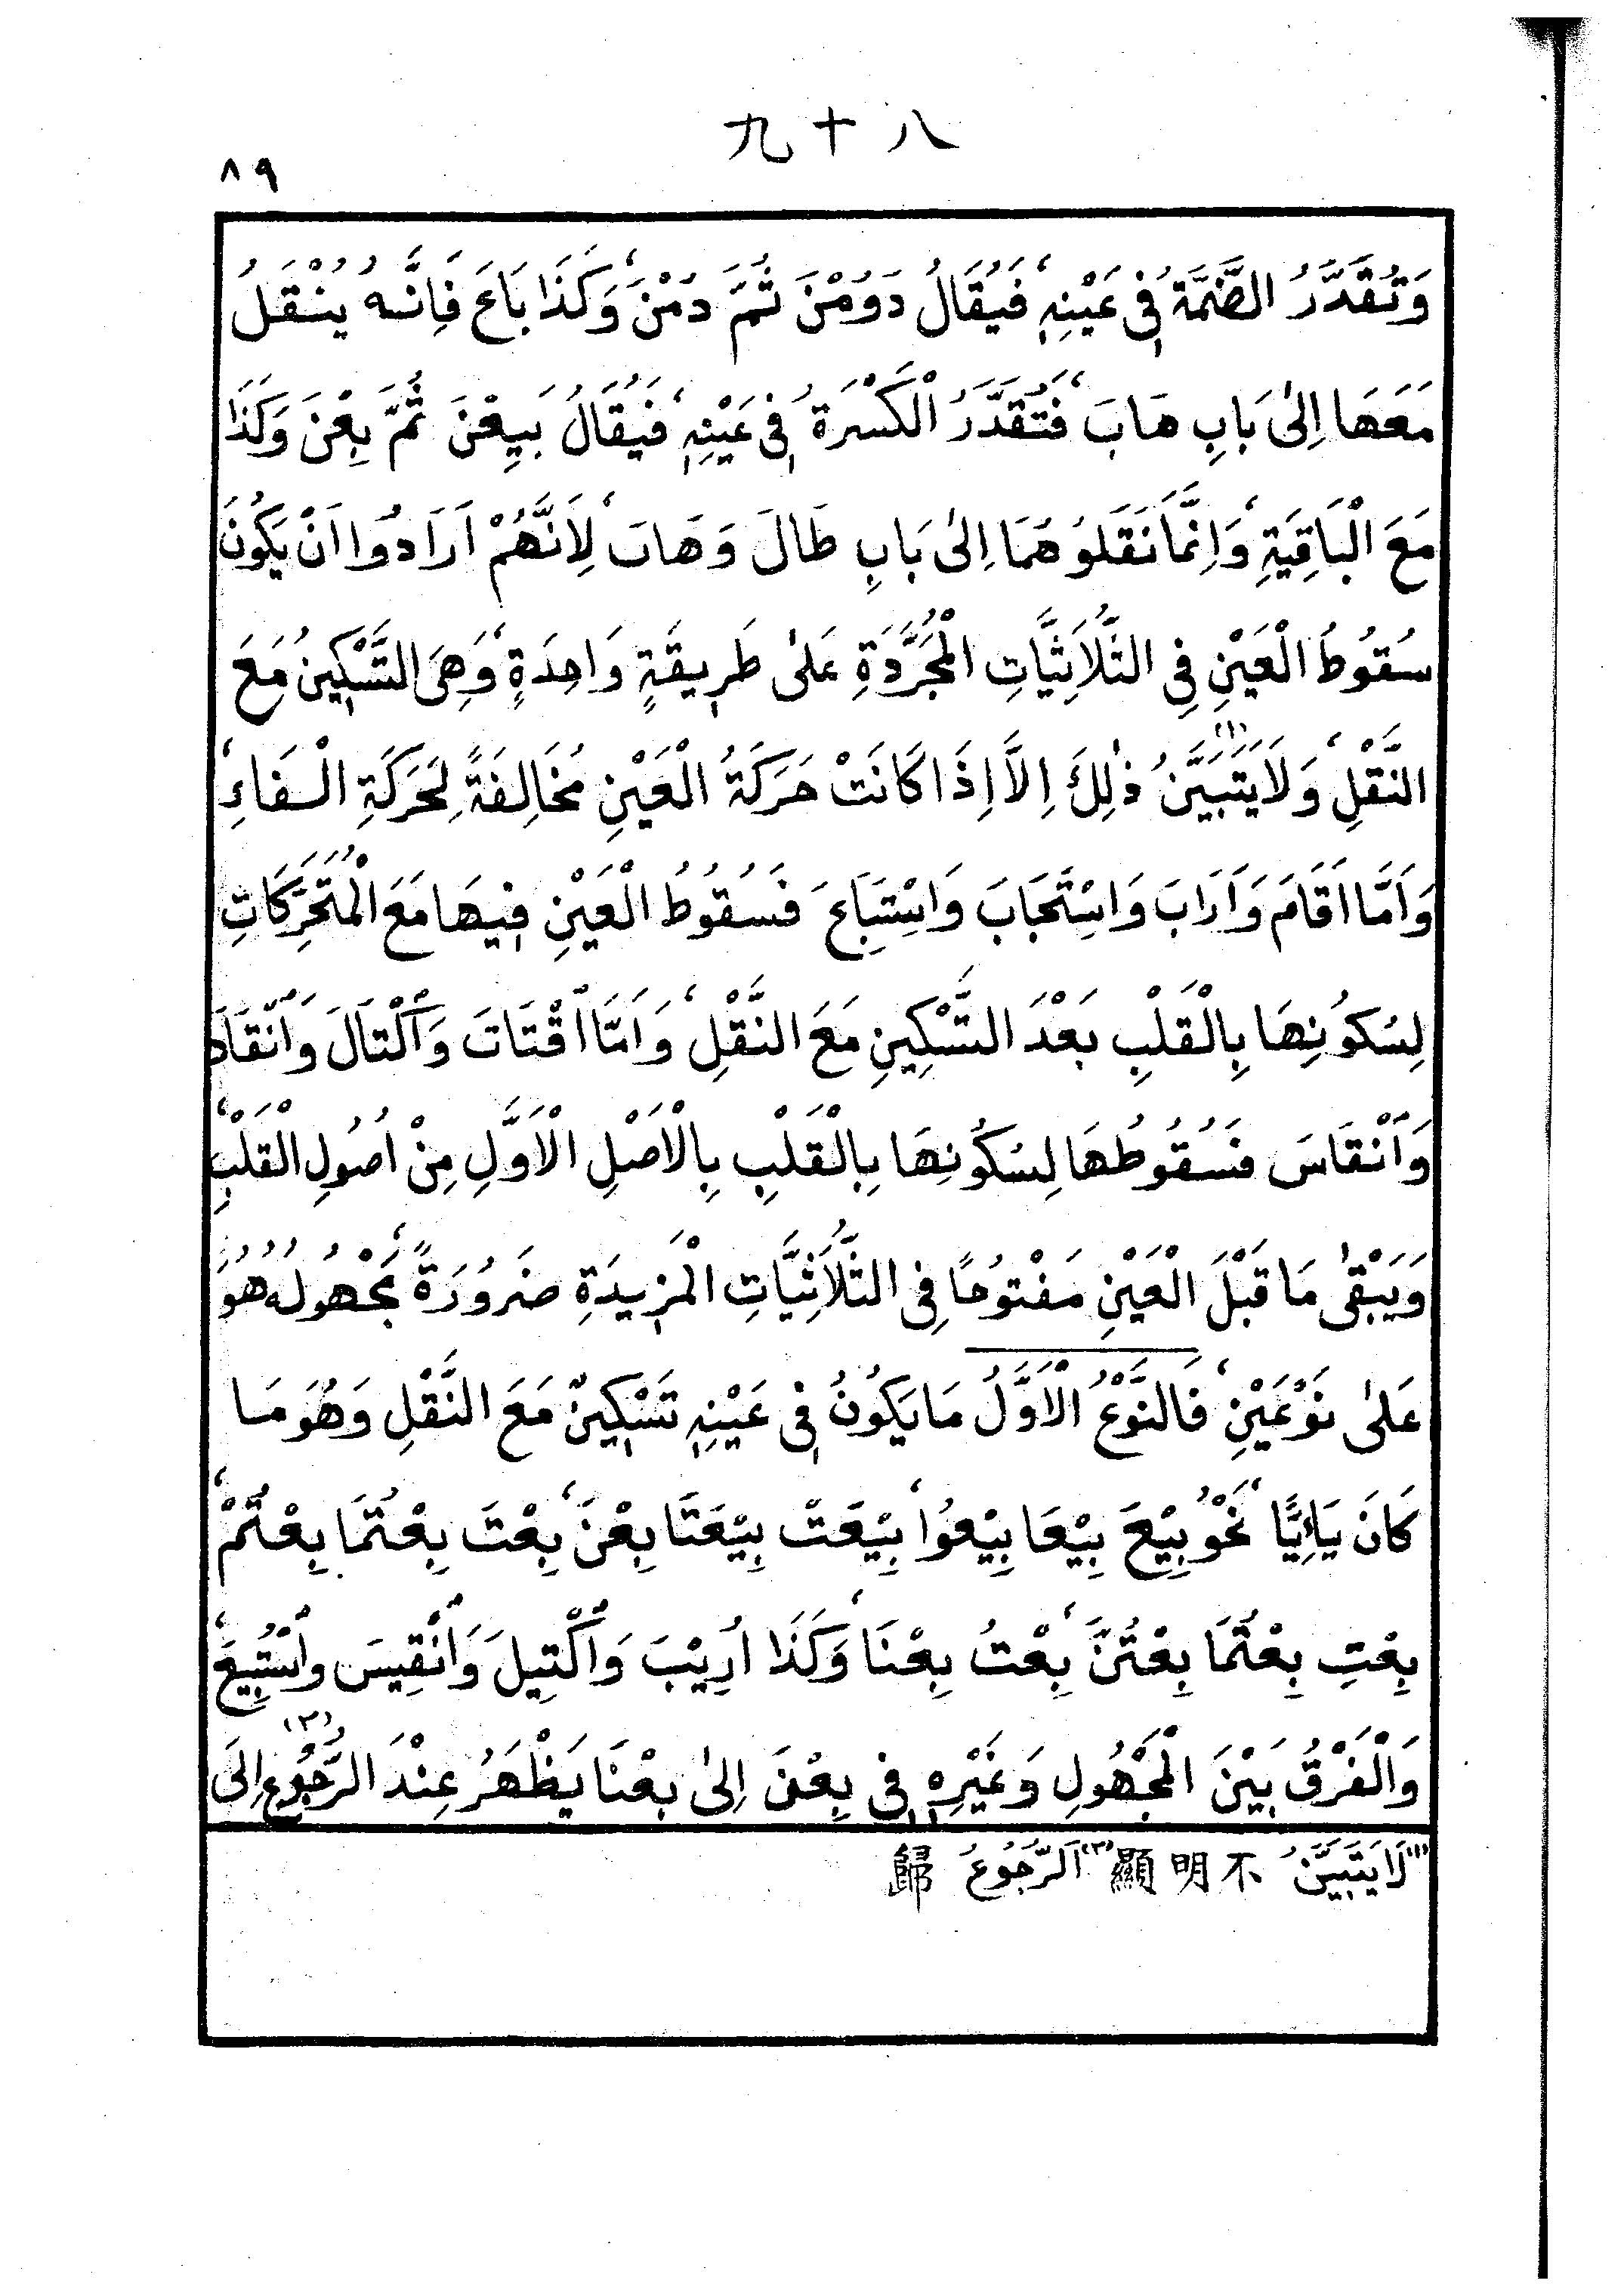 九十八
٨٩
وَتُقَدَّرُ الضَّمَّةُ فِى عَيْنِهِ، فَيُقَالُ دَوُمْنَ ثُمَّ دُمْنَ، وَكَذَا بَاعَ فَاِنَّهُ يُنْقَلُ
مَعَهَا اِلىٰ بَابِ هَابَ، فَتُقَدَّرُ الْكَسْرَةُ فِى عَيْنِهِ، فَيُقَالُ بَيِعْنَ ثُمَّ بِعْنَ وَكَذَا
مَعَ الْبَاقِيَةِ، وَاِنَّمَا نَقَلُوهُمَا اِلىٰ بَابِ طَالَ وَهَابَ، لِاَنَّهُمْ اَرَادُوا اَنْ يَكُونَ
سُقُوطُ الْعَيْنِ فِى الثُّلَاثِيَّاتِ الْمُجَرَّدَةِ عَلىٰ طَرِيقَةٍ وَاحِدَةٍ، وَهِىَ التَّسْكِينُ مَعَ
النَّقْلِ، وَلَا يَتَبَيَّنُ (١) ذٰلِكَ اِلَّا اِذَا كَانَتْ حَرَكَةُ الْعَيْنِ مُخَالِفَةً لِحَرَكَةِ الْفَاءِ،
وَاَمَّا اَقَامَ وَاَرَابَ وَاسْتَجَابَ وَاسْتَبَاعَ فَسُقُوطُ الْعَيْنِ فِيهَا مَعَ الْمُتَحَرِّكَاتِ
لِسُكُونِهَا بِالْقَلْبِ بَعْدَ التَّسْكِينِ مَعَ النَّقْلِ، وَاَمَّا ٱقْتَاتَ وَٱكْتَالَ وَٱنْقَادَ
وَٱنْقَاسَ فَسُقُوطُهَا لِسُكُونِهَا بِالْقَلْبِ بِالْاَصْلِ الْاَوَّلِ مِنْ اُصُولِ الْقَلْبِ،
وَيَبْقىٰ مَا قَبْلَ الْعَيْنِ مَفْتُوحًا فِى الثُّلَاثِيَّاتِ الْمَزِيدَةِ ضَرُورَةً، مَجْهُولُهُ هُوَ
عَلىٰ نَوْعَيْنِ، فَالنَّوْعُ الْاَوَّلُ مَا يَكُونُ فِى عَيْنِهِ تَسْكِينٌ مَعَ النَّقْلِ وَهُوَ مَا
كَانَ يَائِيًّا، نَحْوُ بِيْعَ بِيْعَا بِيْعُوا، بِيْعَتْ بِيْعَتَا بِعْنَ، بِعْتَ بِعْتُمَا بِعْتُمْ،
بِعْتِ بِعْتُمَا بِعْتُنَّ، بِعْتُ بِعْنَا، وَكَذَا اُرِيْبَ وَٱكْتِيلَ وَٱنْقِيسَ وَٱسْتُبِيعَ،
وَالْفَرْقُ بَيْنَ الْمَجْهُولِ وَغَيْرِهِ فِى بِعْنَ اِلىٰ بِعْنَا يَظْهَرُ عِنْدَ الرُّجُوعِ (٢) اِلَى
(١) لَا يَتَبَيَّنُ 不明顯 (٢) اَلرُّجُوعُ 歸